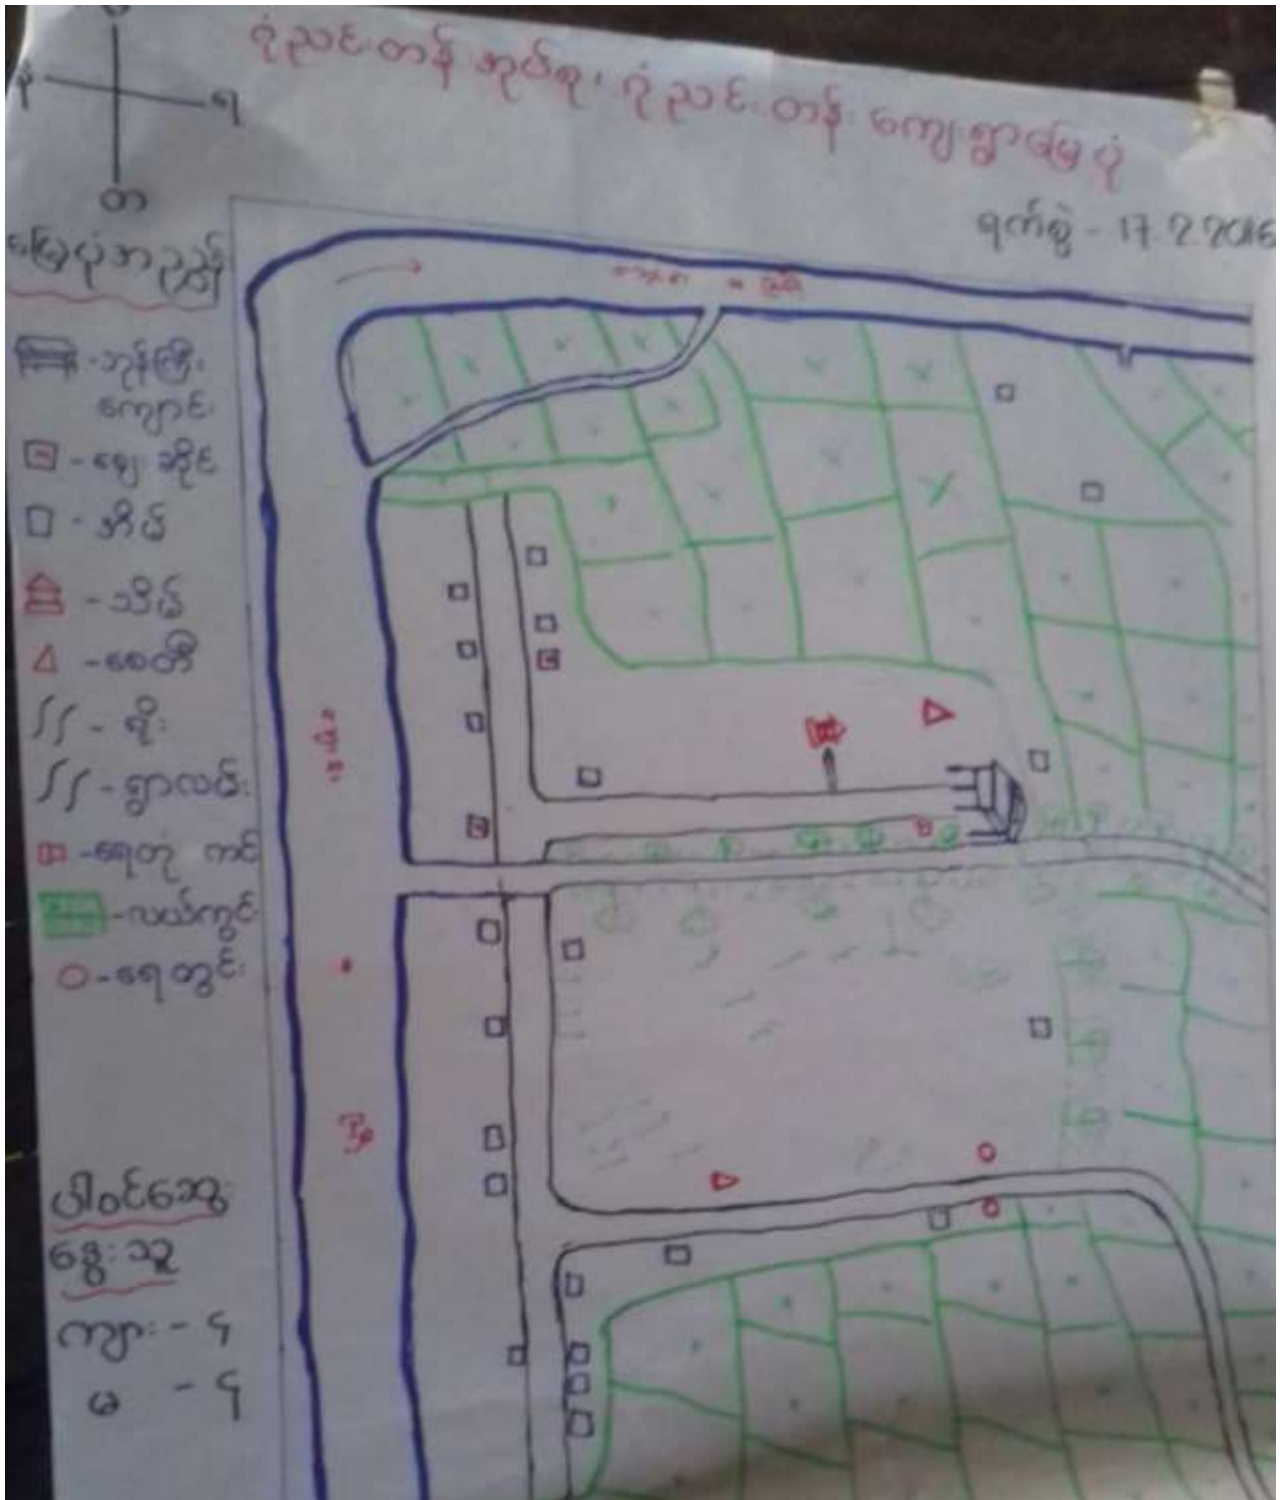 ဂုံညင်းတန်း အုပ်စု၊ ဂုံညင်းတန်း ကျေးရွာမြေပုံ
ရက်စွဲ - 17.2.2016
န
ရ
တ
မြေပုံအညွှန်း
- ဘုန်းကြီး
ကျောင်း
- ဈေးဆိုင်
- အိမ်
- သိမ်
- စေတီ
- ရိုး
- ရွာလမ်း
- ရေတုံကင်
- လယ်ကွင်း
- ရေတွင်း
ပါဝင်ဆွေး
နွေးသူ
ကျား - ၄
မ - ၄